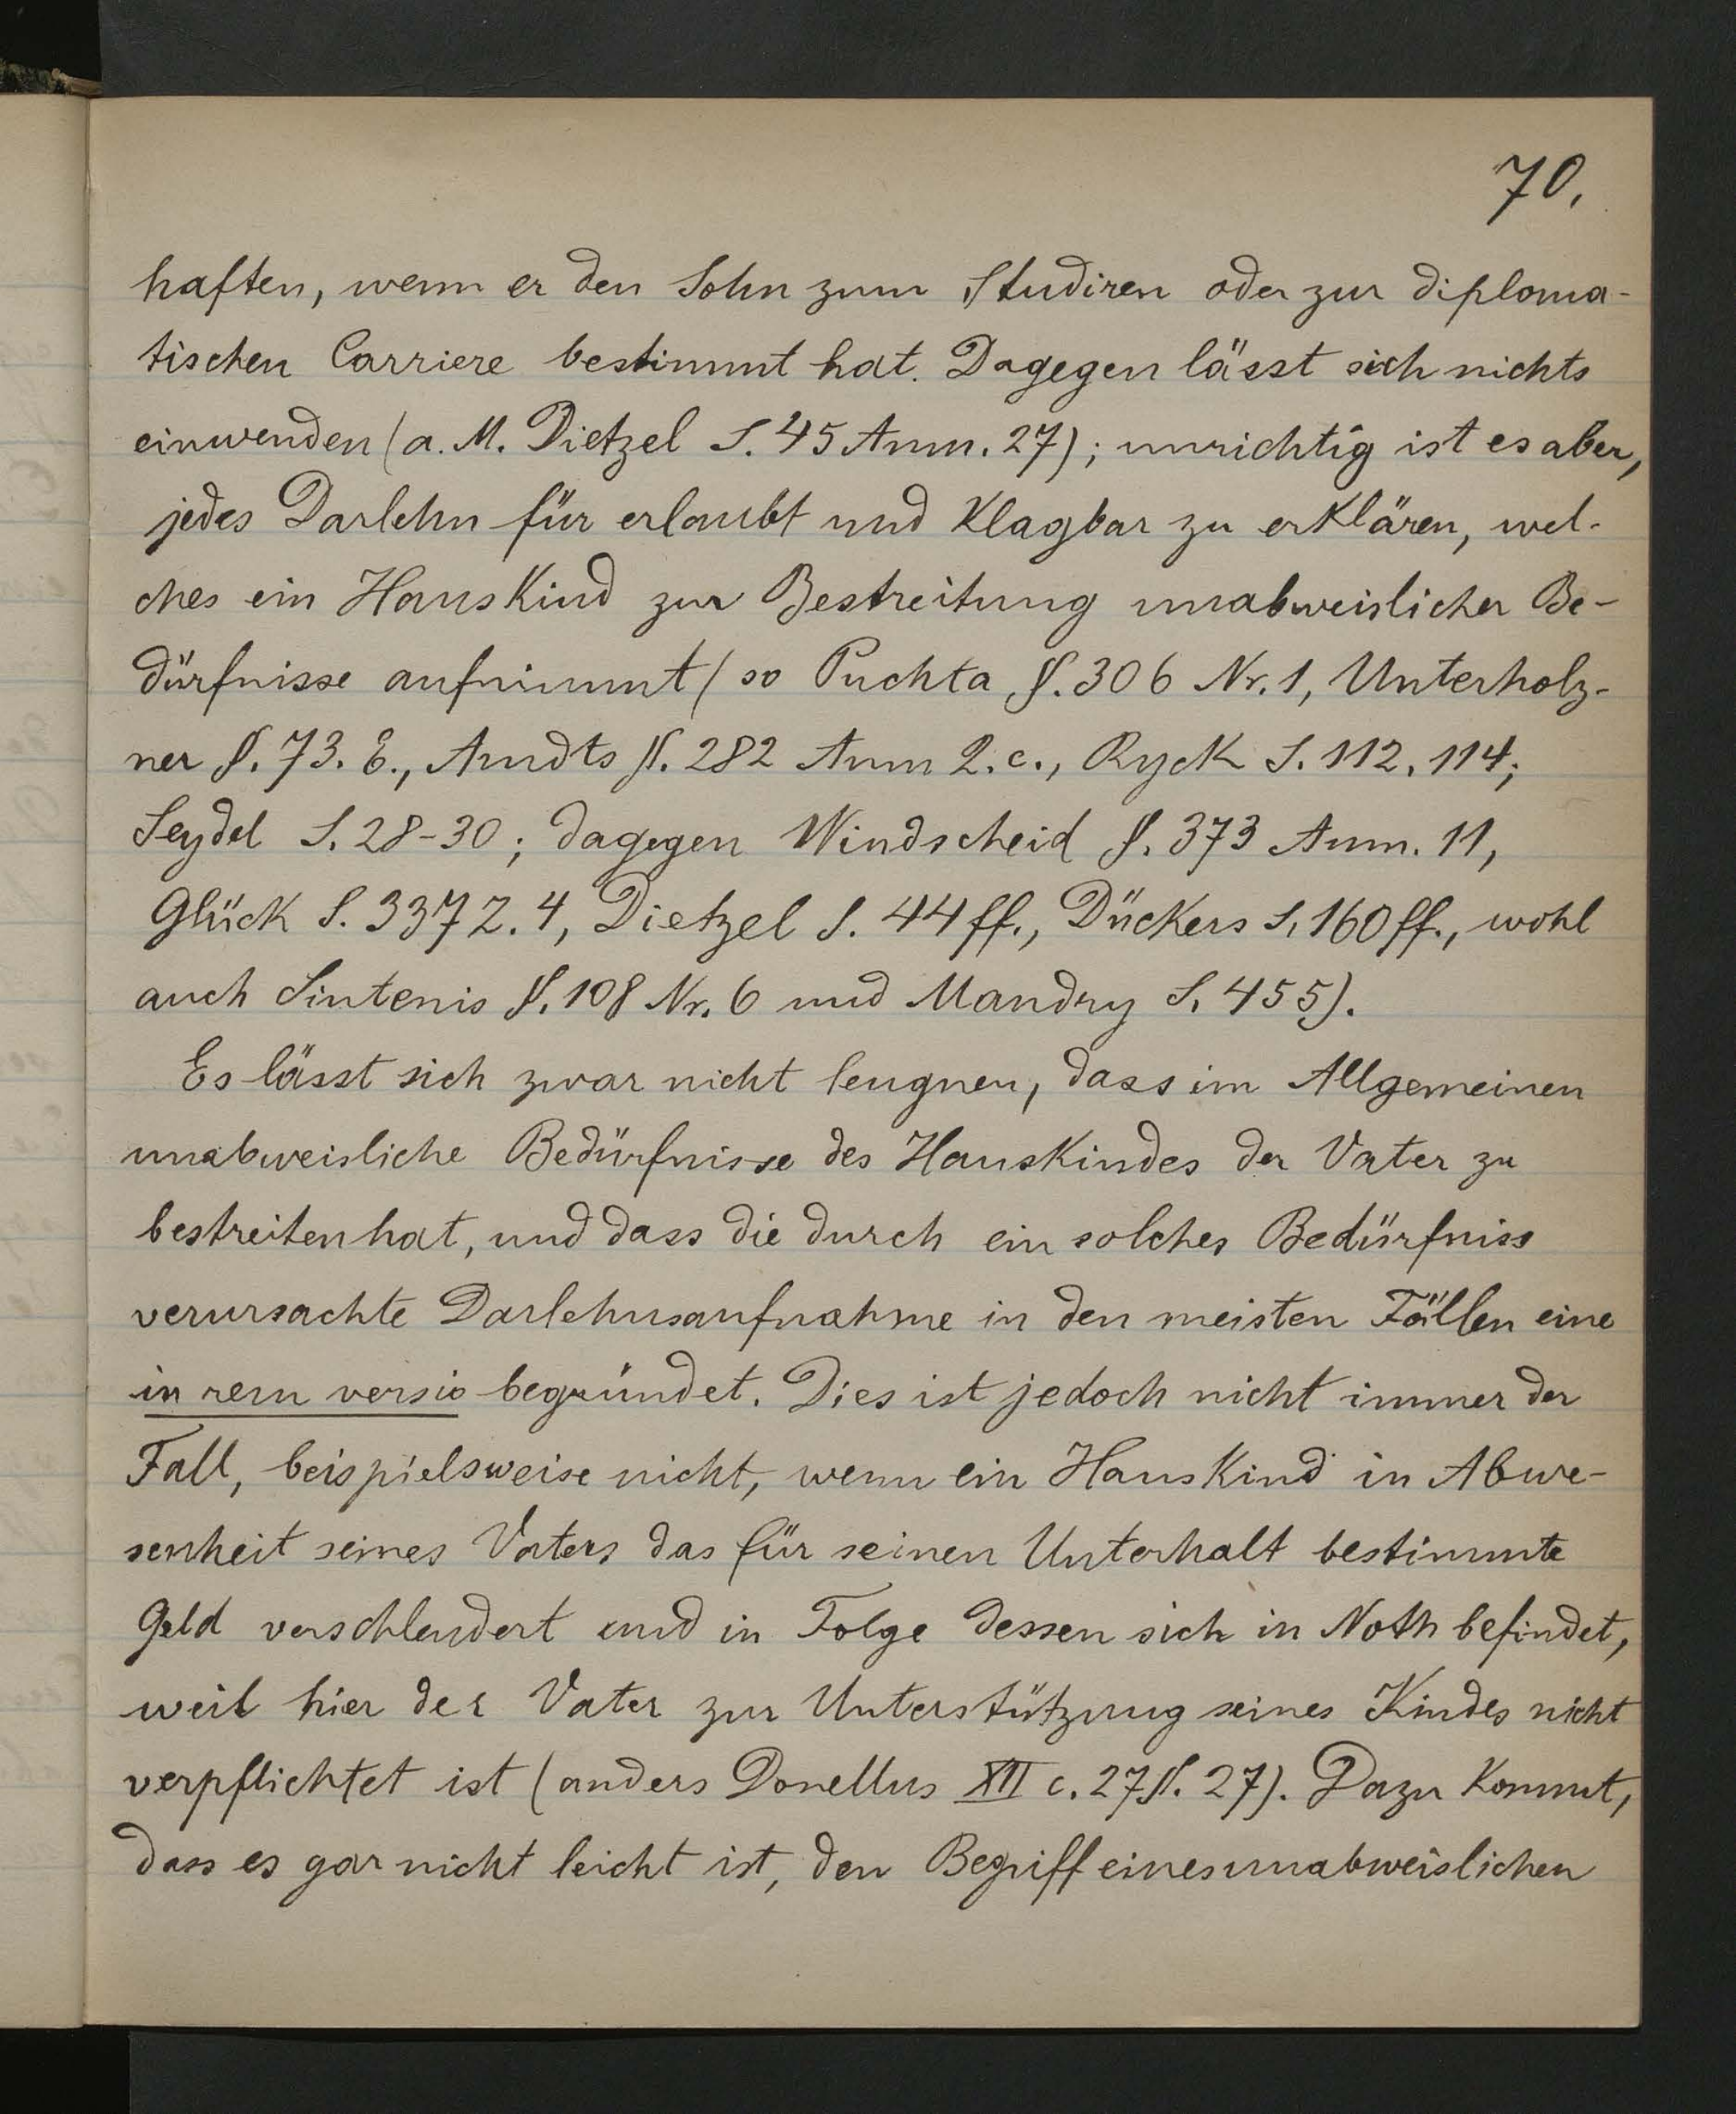 70.
haften, wenn er den Sohn zum Studiren oder zur diploma-
tischen Carriere bestimmt hat. Dagegen lässt sich nichts
einwenden (a. M. Dietzel S. 45 Anm. 27); unrichtig ist es aber,
jedes Darlehn für erlaubt und klagbar zu erklären, wel-
ches ein Hauskind zur Bestreitung unabweislicher Be-
dürfnisse aufnimmt (so Puchta §. 306 Nr. 1, Unterholz-
ner §. 73. E., Arndts §. 282 Anm 2. c., Ryck S. 112, 114;
Seydel S. 28-30; dagegen Windscheid §. 373 Anm. 11,
Glück S. 337 Z. 4, Dietzel S. 44 ff., Dückers S. 160 ff., wohl
auch Sintenis §. 108 Nr. 6 und Mandry S. 455).
Es lässt sich zwar nicht leugnen, dass im Allgemeinen
unabweisliche Bedürfnisse des Hauskindes der Vater zu
bestreiten hat, und dass die durch ein solches Bedürfniss
verursachte Darlehnsaufnahme in den meisten Fällen eine
in rem versio begründet. Dies ist jedoch nicht immer der
Fall, beispielsweise nicht, wenn ein Hauskind in Abwe-
senheit seines Vaters das für seinen Unterhalt bestimmte
Geld verschleudert und in Folge dessen sich in Noth befindet,
weil hier der Vater zur Unterstützung seines Kindes nicht
verpflichtet ist (anders Donellus XII c. 27 §. 27). Dazu kommt,
dass es gar nicht leicht ist, den Begriff eines unabweislichen